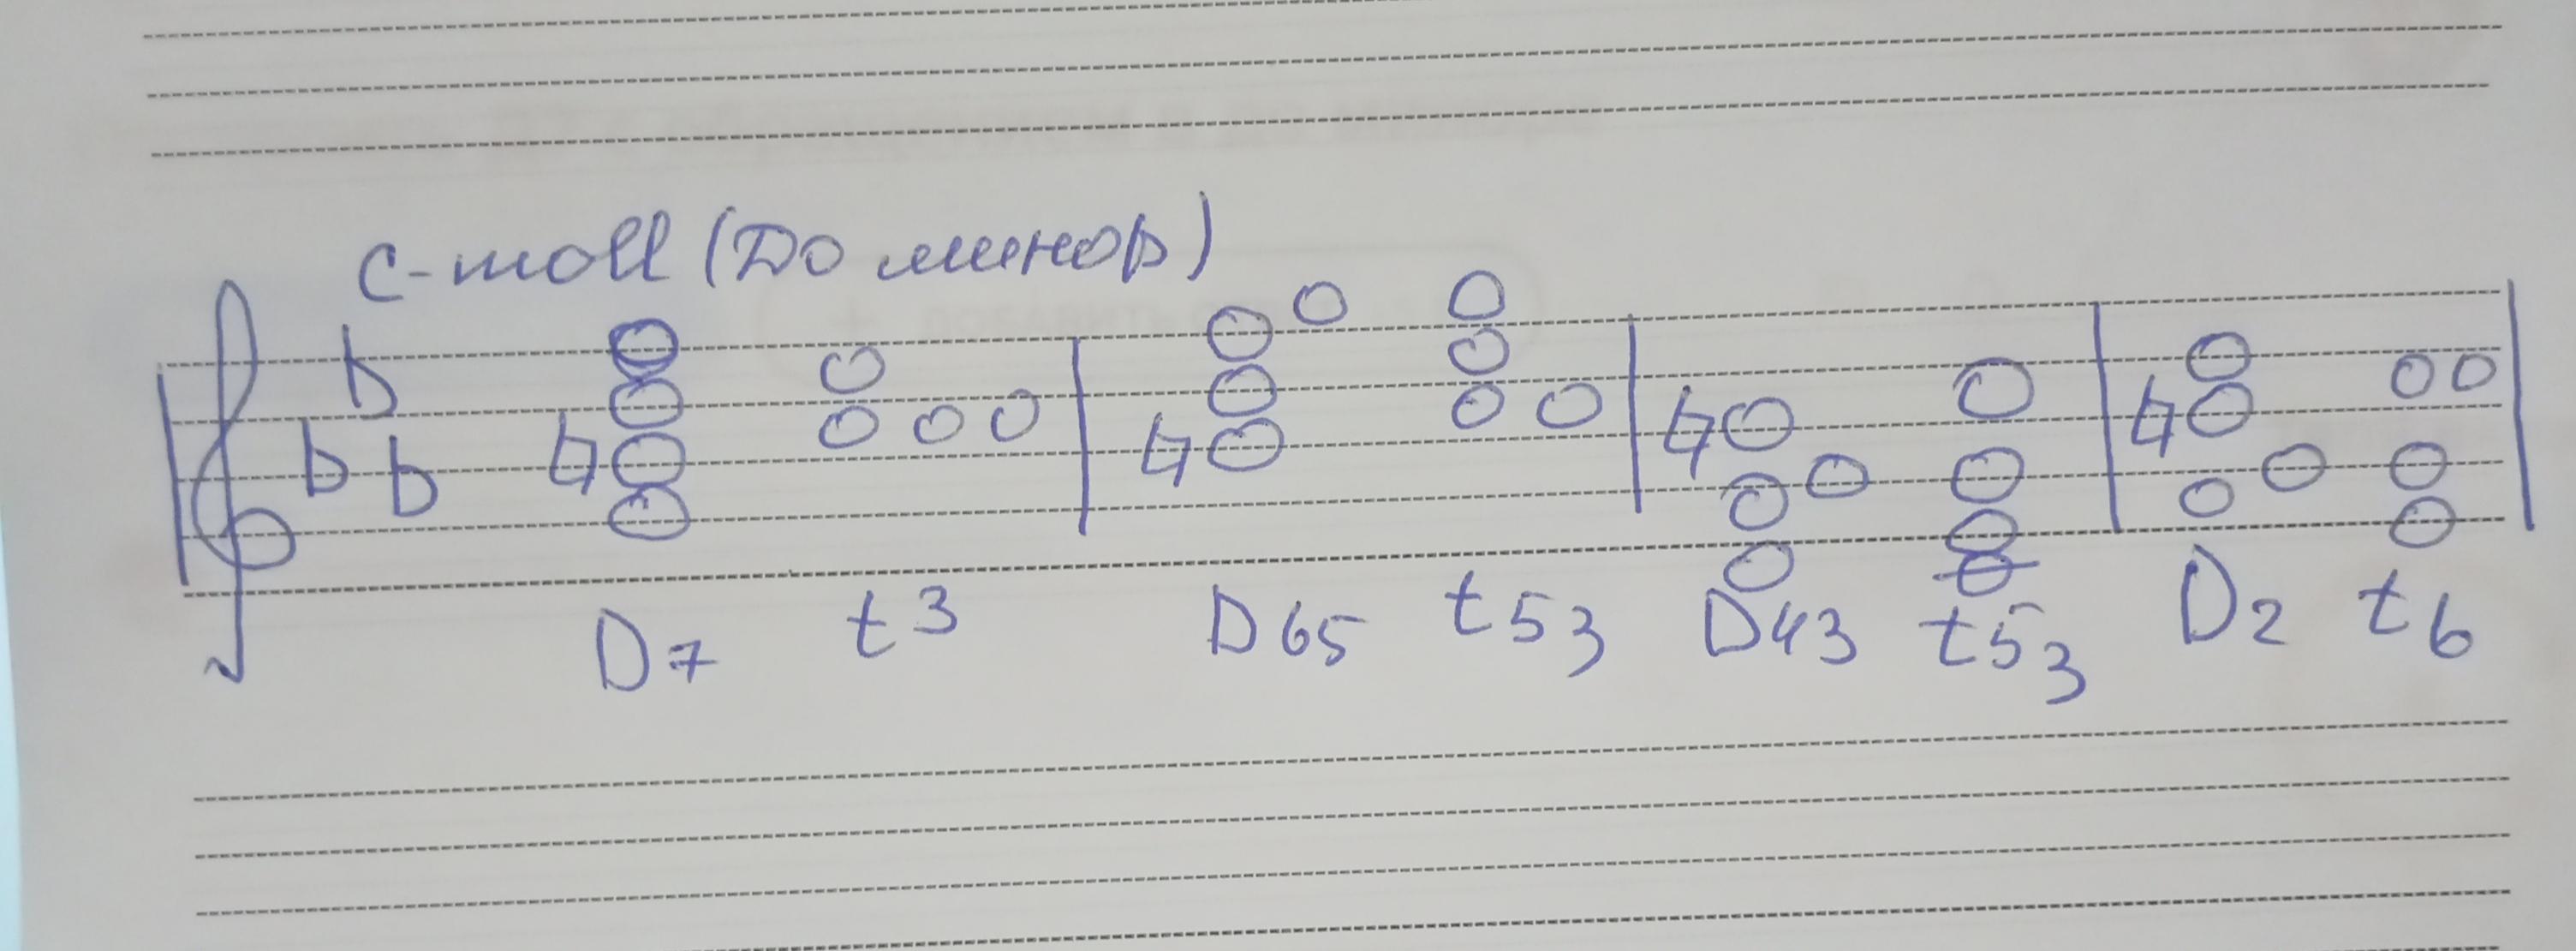 c-moll (До минор)
D7 t3 D65 t53 D43 t53 D2 t6